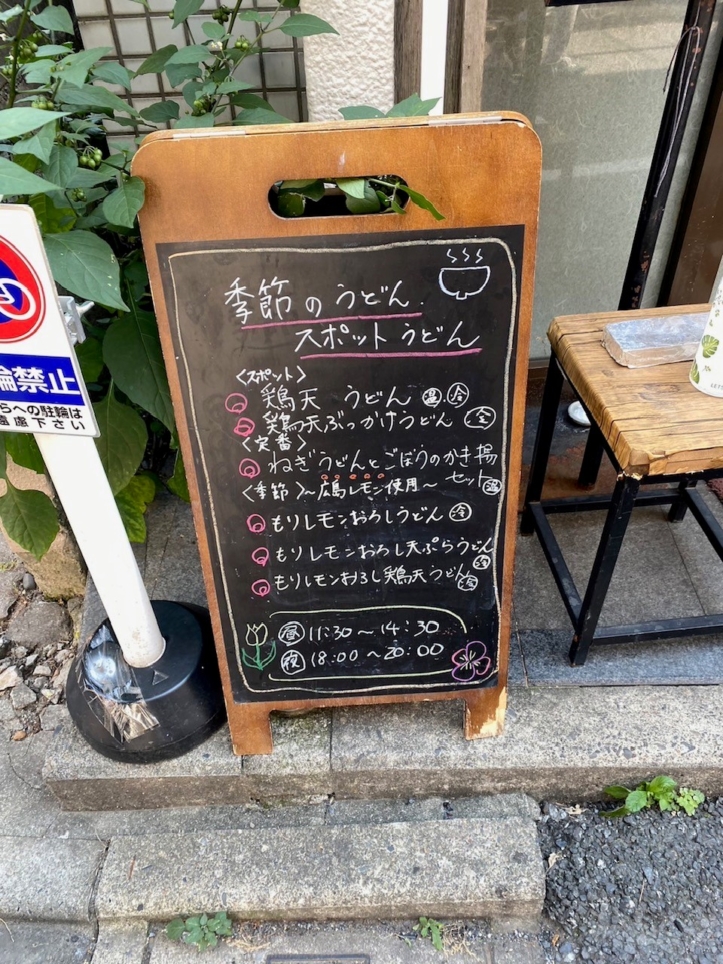 季節のうどん
スポットうどん
〈スポット〉
鶏天 うどん 温 冷
鶏天ぶっかけうどん 冷
〈定番〉
ねぎうどんとごぼうのかき揚
セット 温
〈季節〉〜広島レモン使用〜
もりレモンおろしうどん 冷
もりレモンおろし天ぷらうどん 冷
もりレモンおろし鶏天うどん 冷
昼 11:30〜14:30
夜 18:00〜20:00
輪禁止
らへの駐輪は
遠慮下さい